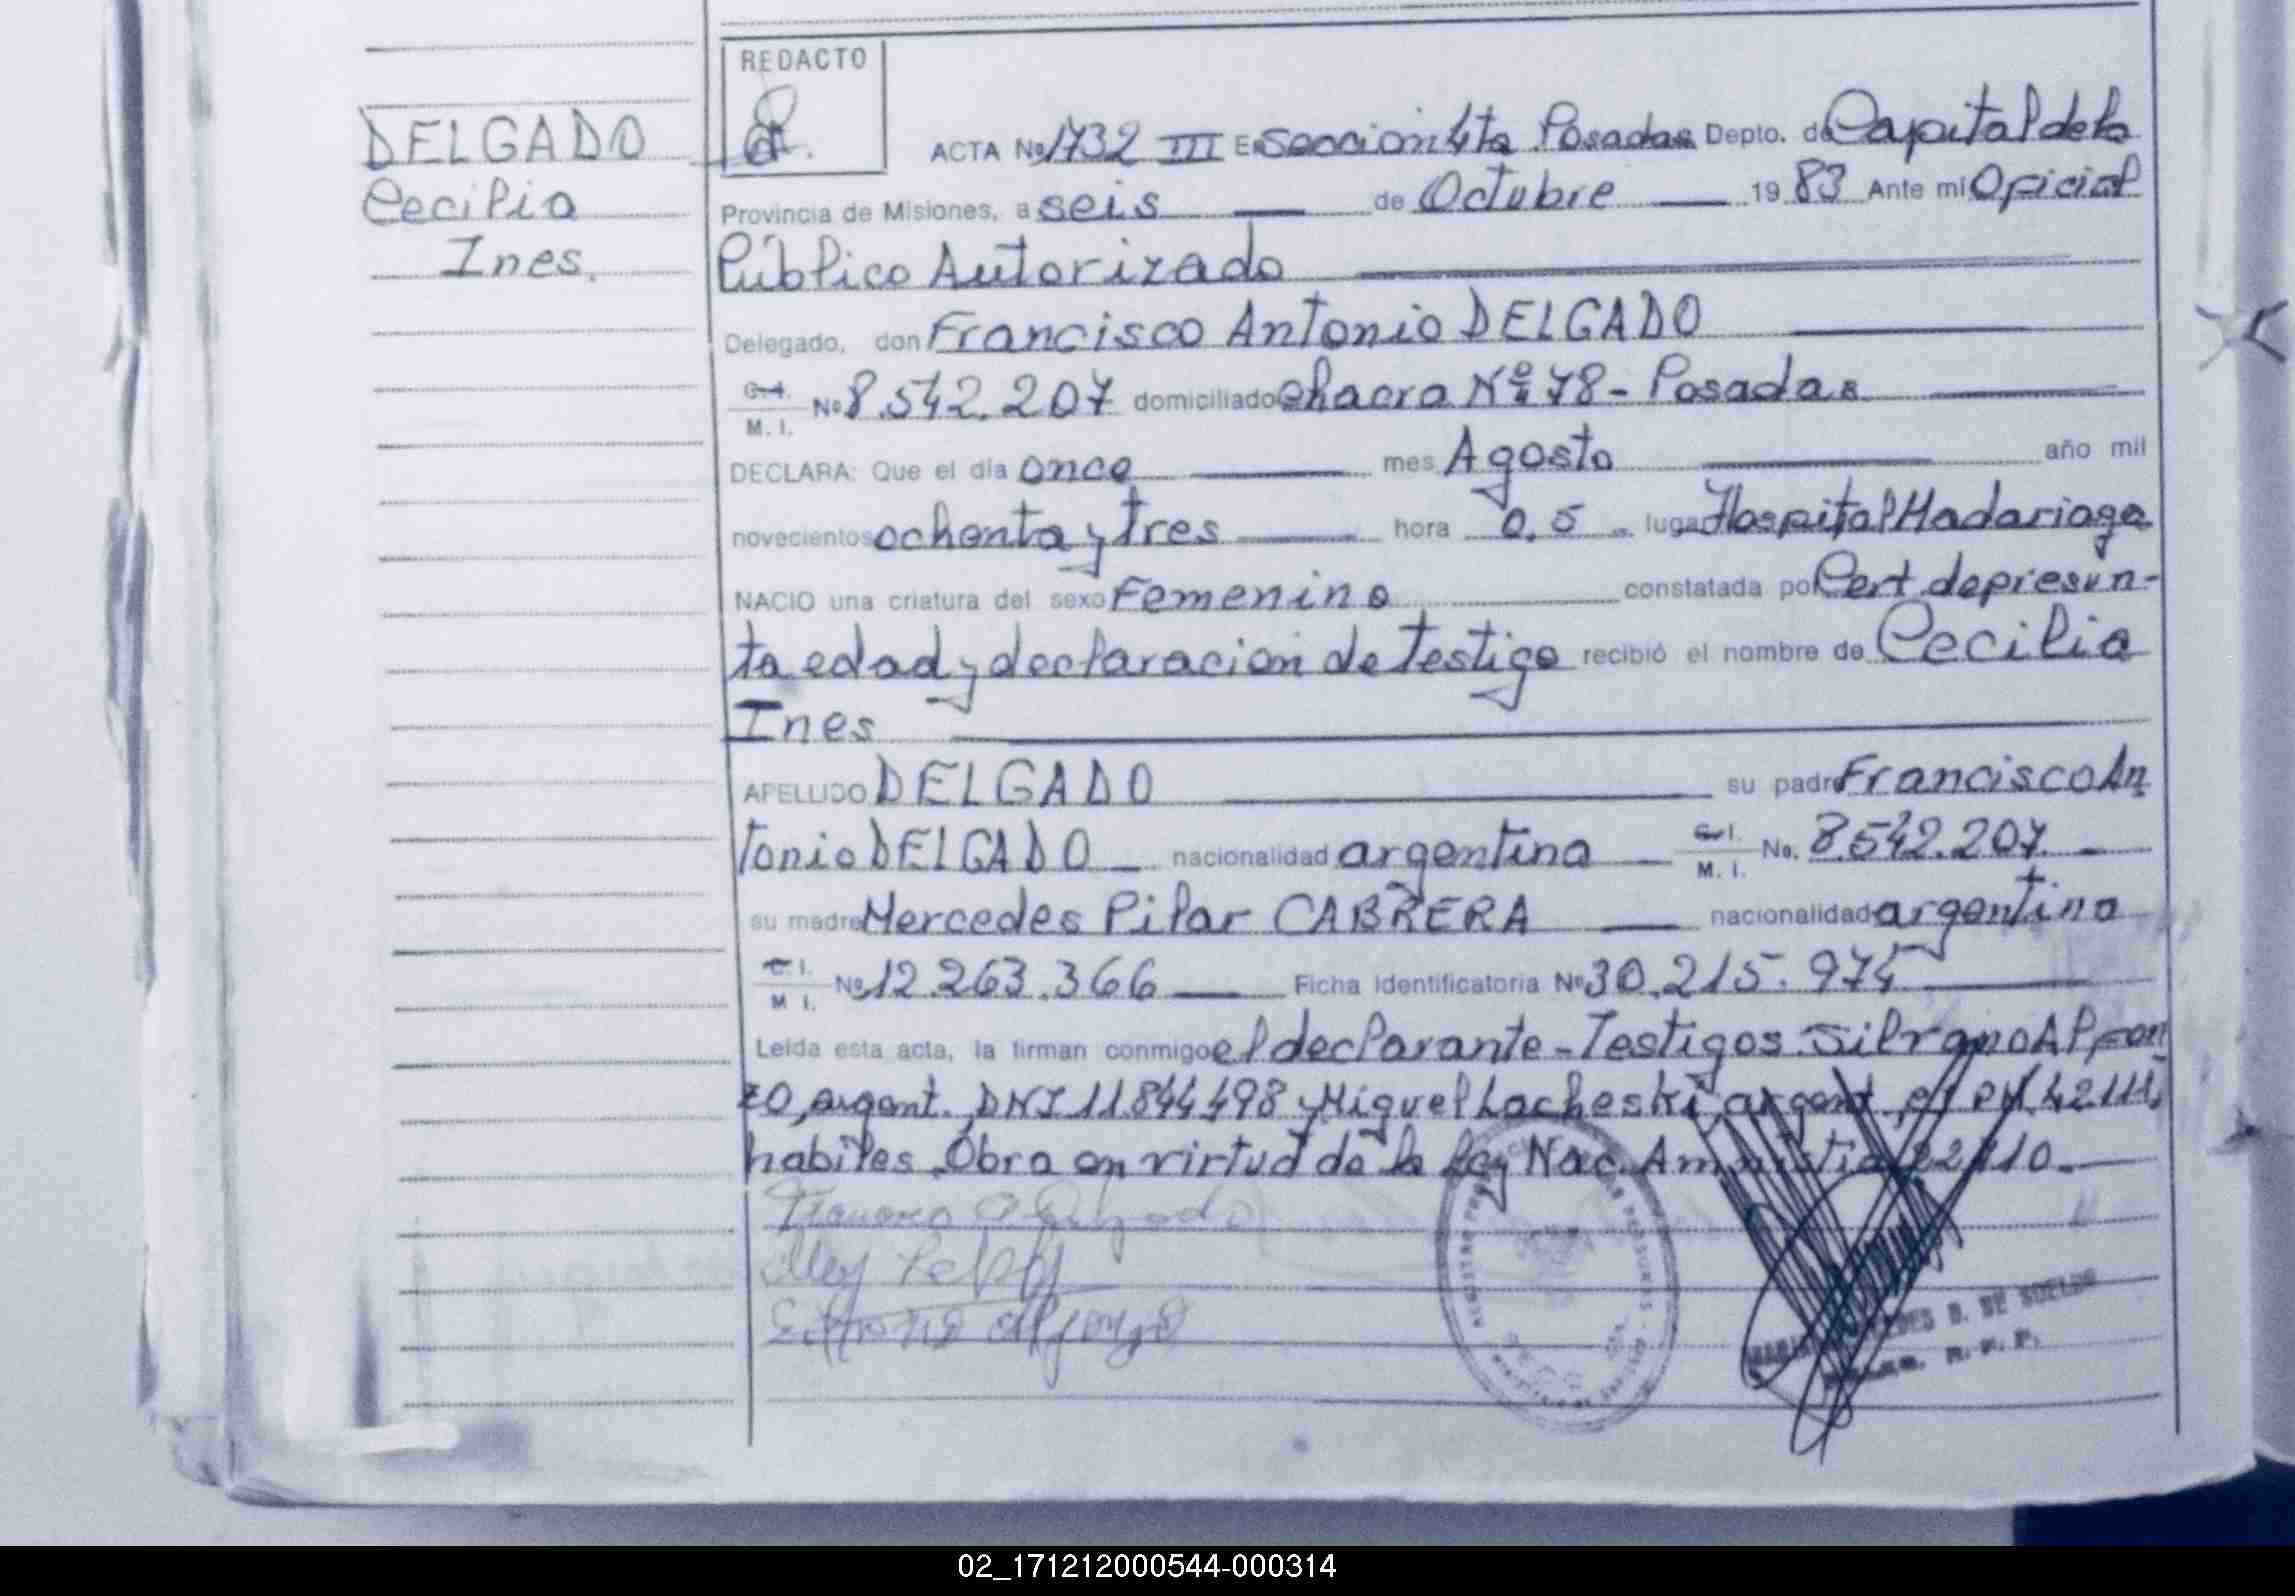 REDACTO
DELGADO
Cecilia
Ines.
ACTA Nº 1732 III En Seccion 4ta Posadas Depto. de Capital de la
Provincia de Misiones, a seis de Octubre 19 83 Ante mi Oficial
Público Autorizado
Delegado, don Francisco Antonio DELGADO
C.I. M.I. Nº 8.542.207 domiciliado Chacra Nº 78 - Posadas
DECLARA: Que el día once mes Agosto año mil
novecientos ochenta y tres hora 0,5 lugar Hospital Madariaga
NACIO una criatura del sexo Femenino constatada por Cert. de presun-
ta edad y declaracion de testigo recibió el nombre de Cecilia
Ines
APELLIDO DELGADO su padre Francisco An
tonio DELGADO nacionalidad argentina C.I. M.I. No. 8.542.207.
su madre Mercedes Pilar CABRERA nacionalidad argentina
C.I. M.I. Nº 12.263.366 Ficha Identificatoria Nº 30.215.974
Leída esta acta, la firman conmigo el declarante - Testigos Silvano Alfon
zo, argent. DNI 11844498 y Miguel Lacheski, argent.
habiles. Obra en virtud de la Ley Nac. Amnistia
DE SUELDO
02_171212000544-000314